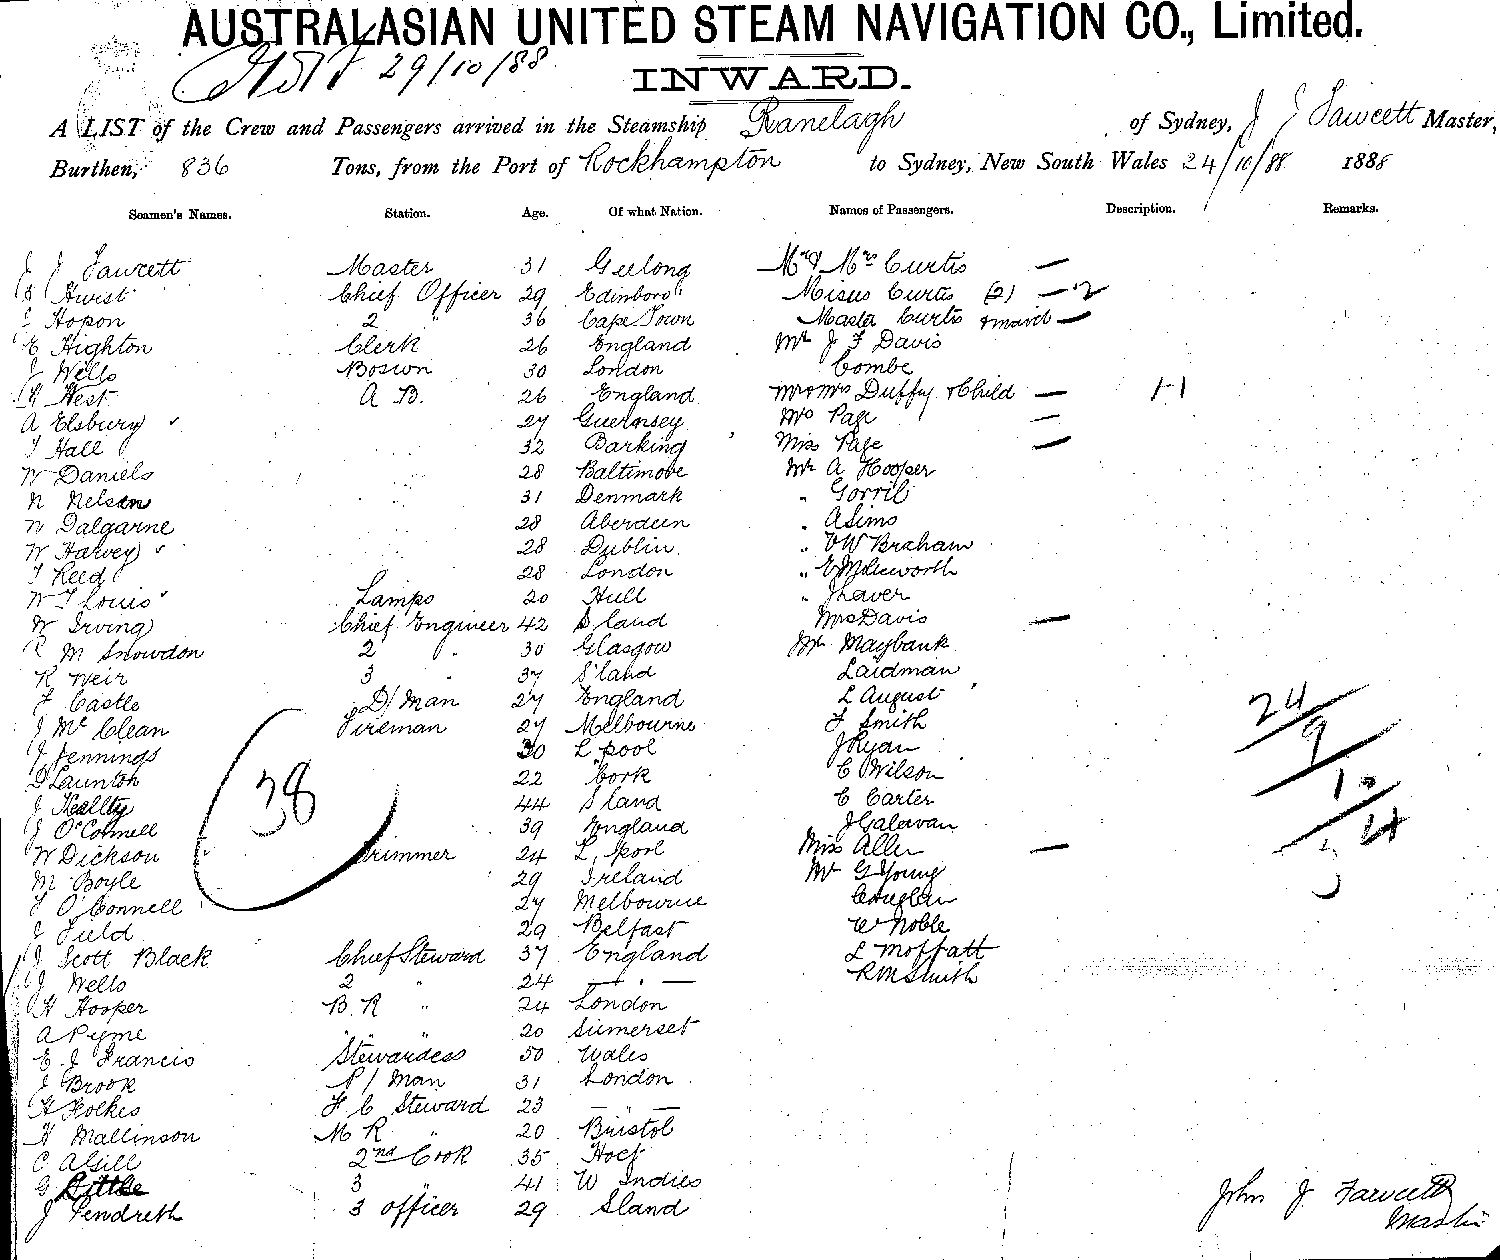 AUSTRALASIAN UNITED STEAM NAVIGATION CO., Limited.
29/10/88
INWARD.
A LIST of the Crew and Passengers arrived in the Steamship Ranelagh of Sydney, J J Fawcett Master,
Burthen, 836 Tons, from the Port of Rockhampton to Sydney, New South Wales 24/10/88 1888
Seamen's Names. Station. Age. Of what Nation. Names of Passengers. Description. Remarks.
J J Fawcett Master 31 Geelong Mr & Mrs Curtis —
Hurst Chief Officer 29 Edinboro' Misses Curtis (2) — 2
Hopon 2 " 36 Cape Town Master Curtis & maid —
E Highton Clerk 26 England Mr J F Davis
J Wells Bosun 30 London Combe
West A B. 26 England Mr & Mrs Duffy & Child — 1-1
A Elsbury 27 Guernsey Mrs Page —
T Hall 32 Barking Miss Page —
W Daniels 28 Baltimore Mr A Hooper
N Nelson 31 Denmark " Gorril
W Dalgarne 28 Aberdeen " A Sims
W Harvey 28 Dublin " Braham
T Reed 28 London "
W T Louis Lamps 20 Hull " J Laver
W Irving Chief Engineer 42 S'land Mrs Davis —
R M Snowdon 2 " 30 Glasgow Mr Maybank
R Weir 3 " 37 S'land Laidman
F Castle D/Man 27 England L August
J McClean Fireman 27 Melbourne F Smith
J Jennings 30 L'pool J Ryan
D Launton 22 Cork C Wilson
J Keallty 44 S'land C Carter
J O'Connell 39 England J Galavan
W Dickson Trimmer 24 L'pool Miss Allen —
M Boyle 29 Ireland Mr G Young
T O'Connell 27 Melbourne Couglan
J Field 29 Belfast W Noble
J Scott Black Chief Steward 37 England L Moffatt
J Wells 2 " 24 — " — R M Smith
H Hooper B R " 24 London
A Pyme " " 20 Sumerset
E J Francis Stewardess 50 Wales
J Brook P/Man 31 London
H Folkes F C Steward 23 — " —
H Mallinson M R " 20 Bristol
C A Gill 2nd Cook 35
G Little 3 " 41 W Indies
J Pendreth 3 officer 29 S'land
38
24
9
John J Fawcett
Master